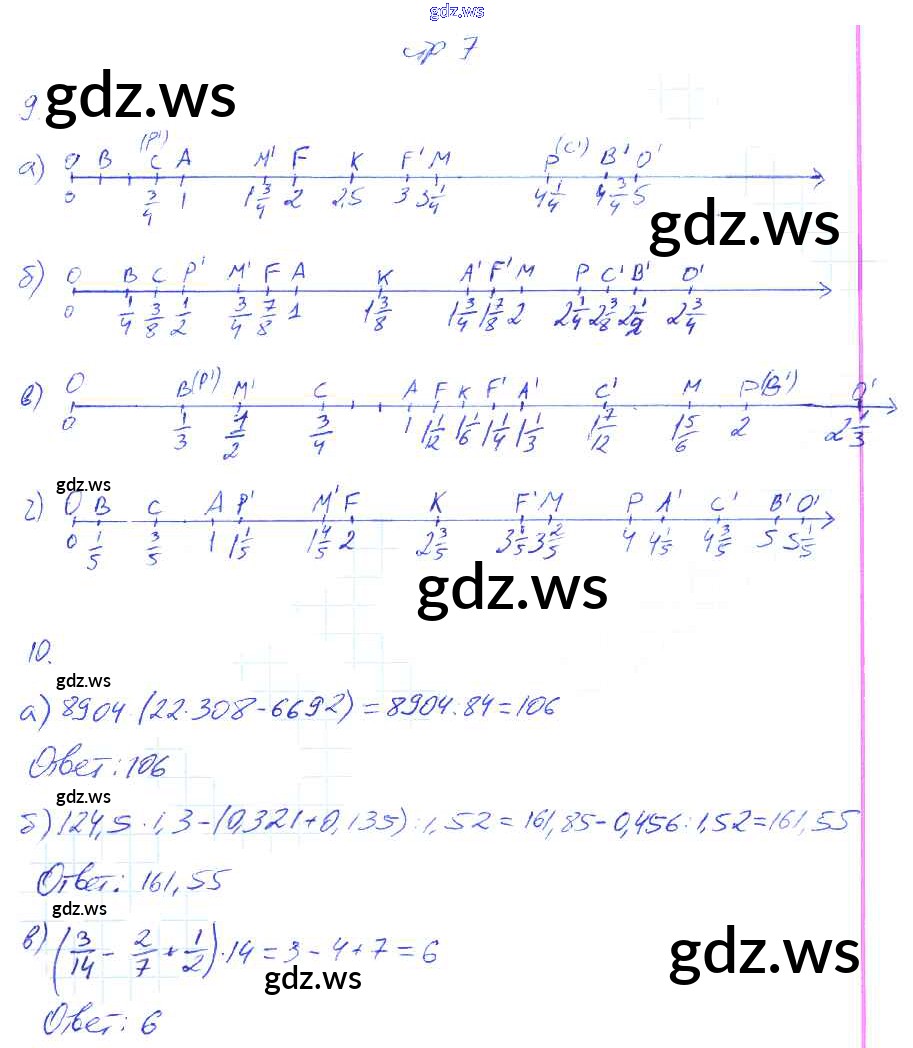 gdz.ws
стр 7
9.
gdz.ws
(P') (C')
а) O B C A M' F K F' M P B' O'
0 3/4 1 1 3/4 2 2,5 3 3 1/4 4 1/4 4 3/4 5
gdz.ws
б) O B C P' M' F A K A' F' M P C' B' O'
0 1/4 3/8 1/2 3/4 7/8 1 1 3/8 1 3/4 1 7/8 2 2 1/4 2 3/8 2 1/2 2 3/4
в) O B(P') M' C A F K F' A' C' M P(B') O'
0 1/3 1/2 3/4 1 1 1/12 1 1/6 1 1/4 1 1/3 1 7/12 1 5/6 2 2 1/3
gdz.ws
г) O B C A P' M' F K F' M P A' C' B' O'
0 1/5 3/5 1 1 1/5 1 4/5 2 2 3/5 3 1/5 3 2/5 4 4 1/5 4 3/5 5 5 1/5
gdz.ws
10.
gdz.ws
а) 8904:(22·308-6692)=8904:84=106
Ответ: 106
gdz.ws
б) 124,5·1,3-(0,321+0,135):1,52=161,85-0,456:1,52=161,55
Ответ: 161,55
gdz.ws
в) (3/14 - 2/7 + 1/2)·14=3-4+7=6
gdz.ws
gdz.ws
Ответ: 6